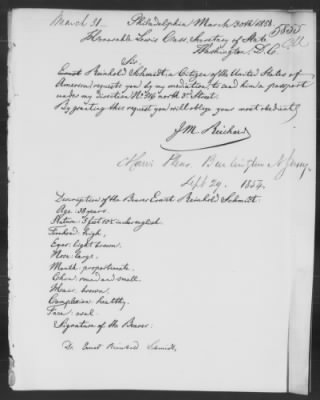 March 31.
Philadelphia March 30th 1858
5855
Honorable Lewis Cass, Secretary of State
Washington, D. C.
Sir,
Ernst Reinhold Schmidt, a Citizen of the United States of
America requests you by my mediation, to send him a passport
under my direction No north Street.
By granting this request you will oblige your most obedient
J M Reichard
Burlington N Jersey
Sept 29. 1854.
Description of the Bearer Ernst Reinhold Schmidt.
Age: 38 years.
Stature: 5 feet english.
Forehead: high,
Eyes: light brown.
Nose: large.
Mouth: proportionate.
Chin: round and small.
Hair: brown.
Complexion: healthy.
Face: oval.
Signature of the Bearer.
Dr. Ernst Reinhold Schmidt,